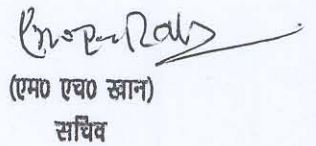 (एम0 एच0 खान)
सचिव